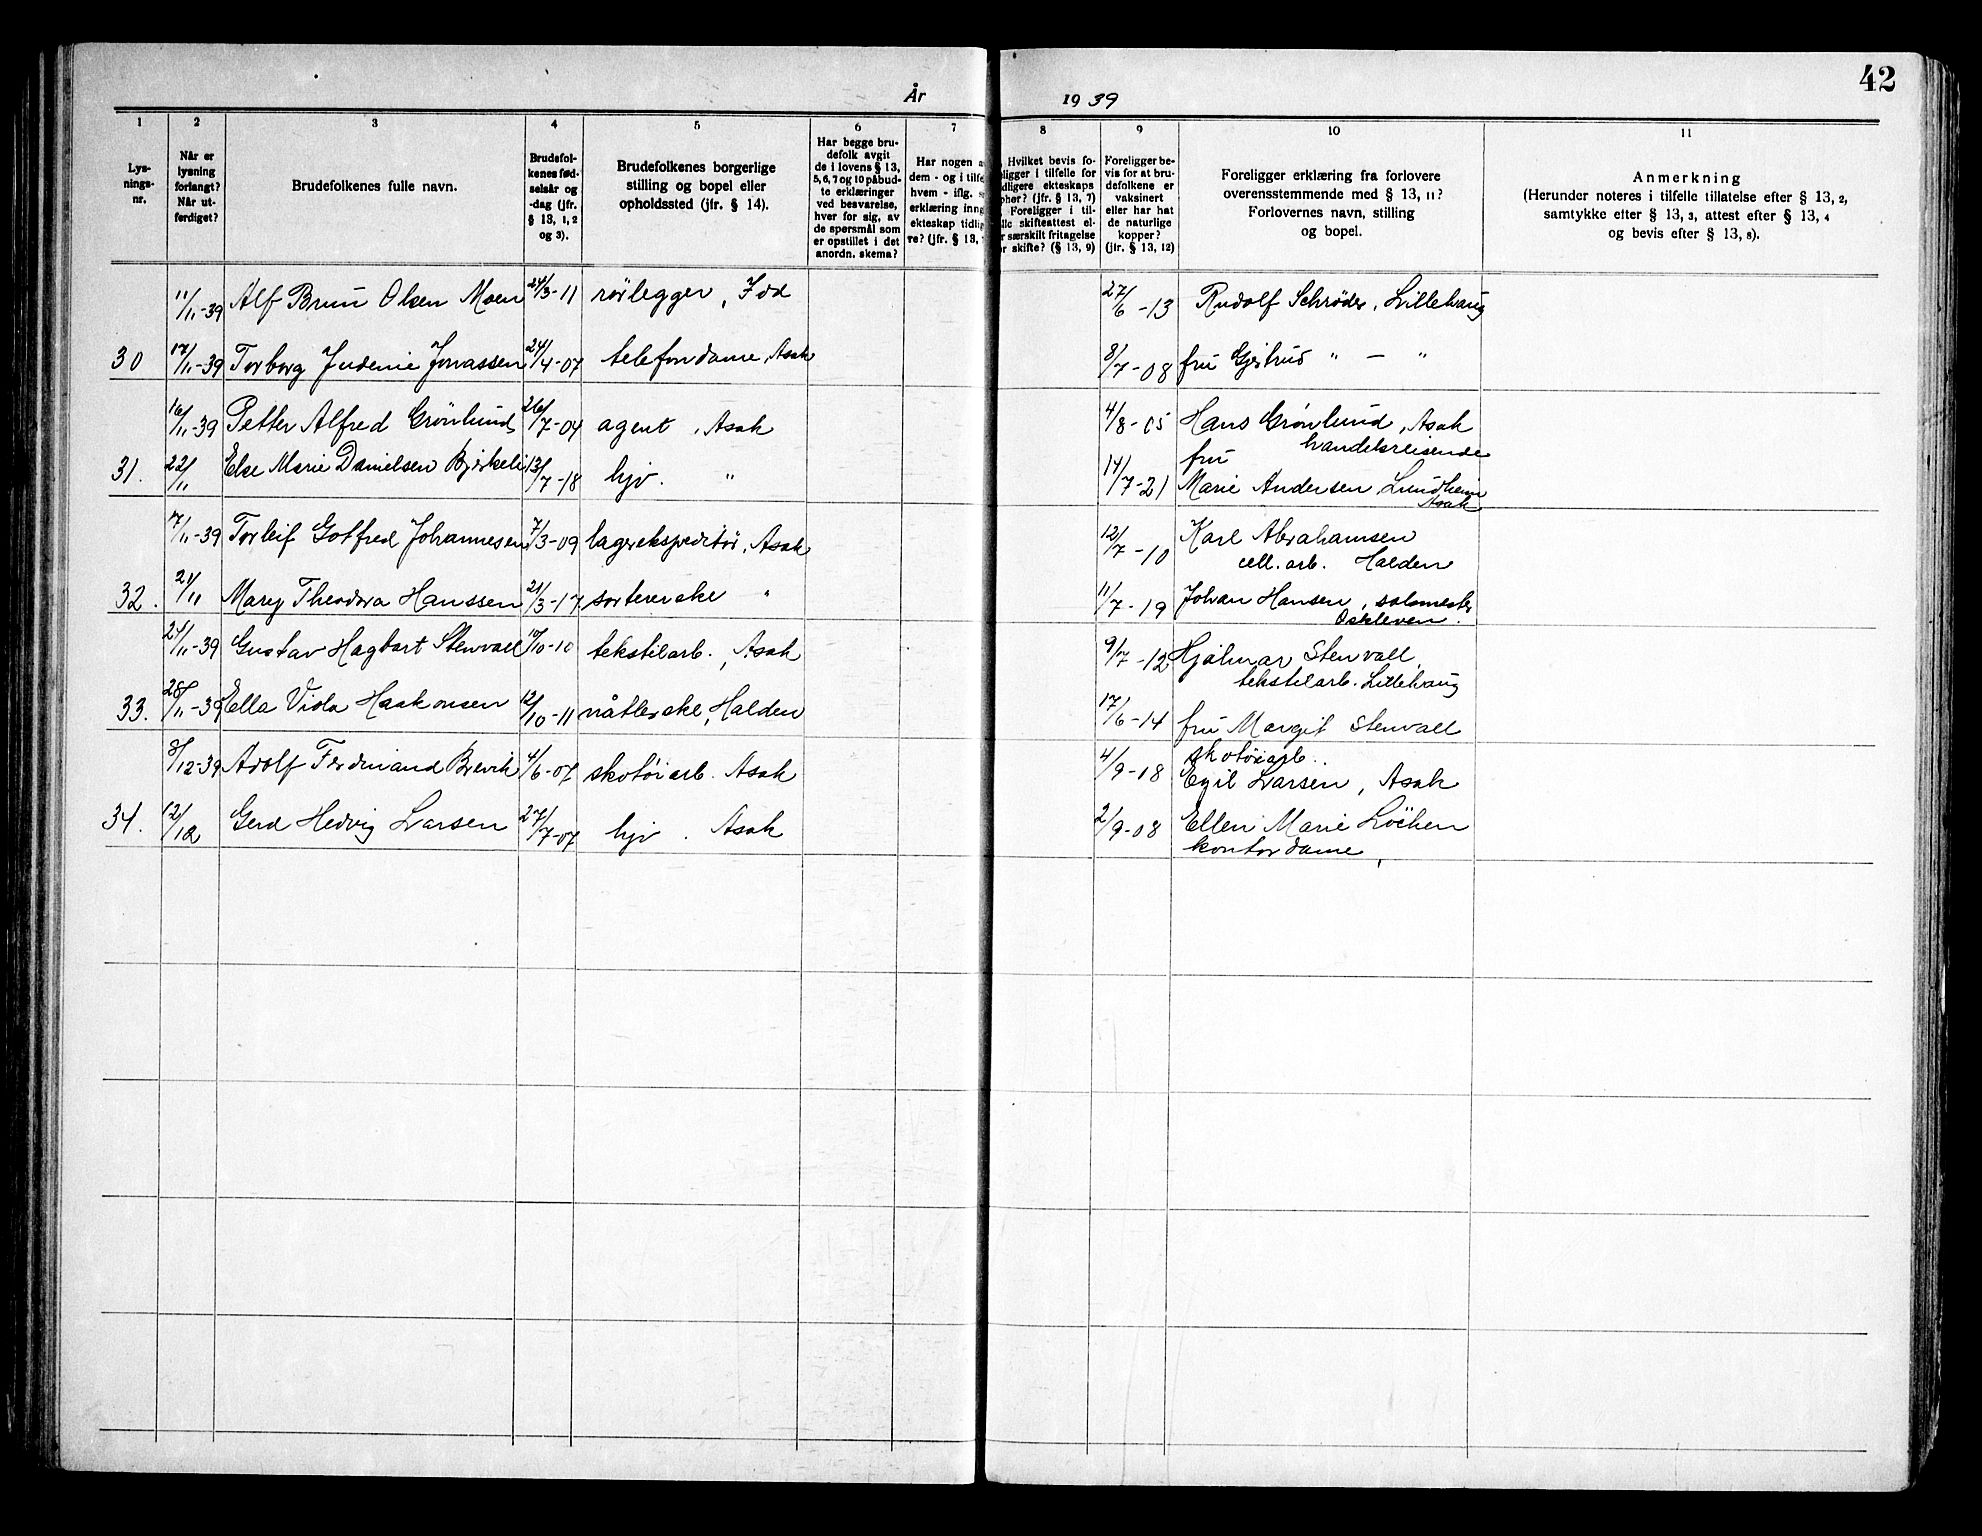 42
År 1939
1 2 3 4 5 6 7 8 9 10 11
Lys-
nings-
nr.
Når er
lysning
forlangt?
Når ut-
ferdiget?
Brudefolkenes fulle navn.
Brudefol-
kenes fød-
selsår og
-dag (jfr.
§ 13, 1, 2
og 3).
Brudefolkenes borgerlige
stilling og bopel eller
opholdssted (jfr. § 14).
Har begge bru-
defolk avgit
de i lovens § 13,
5, 6, 7 og 10 påbud-
te erklæringer
ved besvarelse,
hver for sig, av
de spørsmål som
er opstillet i det
anordn. skema?
Har nogen a
dem - og i tilfe
hvem - iflg. s
erklæring inng
ekteskap tidlig
re? (jfr. § 13,
Hvilket bevis fo-
religger i tilfelle for
idligere ekteskaps
phør? (jfr. § 13, 7)
Foreligger i til-
lle skifteattest el-
r særskilt fritagelse
or skifte? (§ 13, 9)
Foreligger be-
vis for at bru-
defolkene er
vaksinert
eller har hat
de naturlige
kopper?
(jfr. § 13, 12)
Foreligger erklæring fra forlovere
overensstemmende med § 13, 11?
Forlovernes navn, stilling
og bopel.
Anmerkning
(Herunder noteres i tilfelle tillatelse efter § 13, 2,
samtykke efter § 13, 3, attest efter § 13, 4
og bevis efter § 13, 8).
11/11-39 Alf Brun Olsen Moen 24/3-11 rørlegger, Idd 27/6-13 Rudolf Schrøder, Lillehaug
30 17/11-39 Torborg Judenie Jonassen 24/4-07 telefondame, Asak 8/7-08 fru Gjertrud " — "
16/11-39 Petter Alfred Grønlund 26/7-04 agent, Asak 4/8-05 Hans Grønlund, Asak
handelsreisende
31. 22/11 Else Marie Danielsen Bjerkeli 13/7-18 hjv. " 14/7-21 fru
Marie Andersen, Lundheim
Asak
7/11-39 Torleif Gotfred Johannesen 7/3-09 lagerekspeditør, Asak 12/7-10 Karl Abrahamsen
cell. arb. Halden
32. 21/11 Mary Theodora Hanssen 21/3-17 sortererske " 11/7-19 Johan Hansen, salmester
Oskleven.
24/11-39 Gustav Hagbart Stenvall 10/10-10 tekstilarb., Asak 9/7-12 Hjalmar Stenvall,
tekstilarb. Lillehaug
33. 28/11-39 Ella Viola Haakonsen 12/10-11 nåtlerske, Halden 17/6-14 fru Margit Stenvall
8/12-39 Adolf Ferdinand Brevik 4/6-07 skotøiarb. Asak 4/9-08 skotøiarb.
Egil Larsen, Asak
34. 12/12 Gerd Hedvig Larsen 27/7-07 hjv. Asak 2/9-08 Ellen Marie Løchen
kontordame,